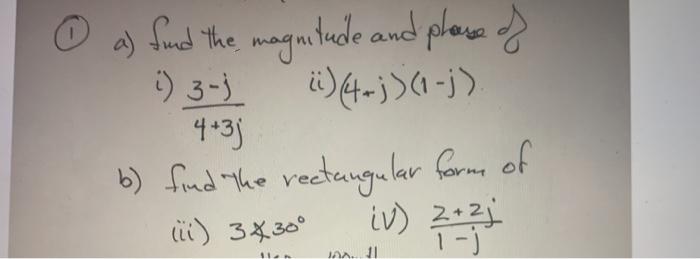 ① a) find the magnitude and phase of
i) 3-j / 4+3j ii) (4-j)(1-j)
b) find the rectangular form of
(iii) 3∡30° iv) 2+2j / 1-j